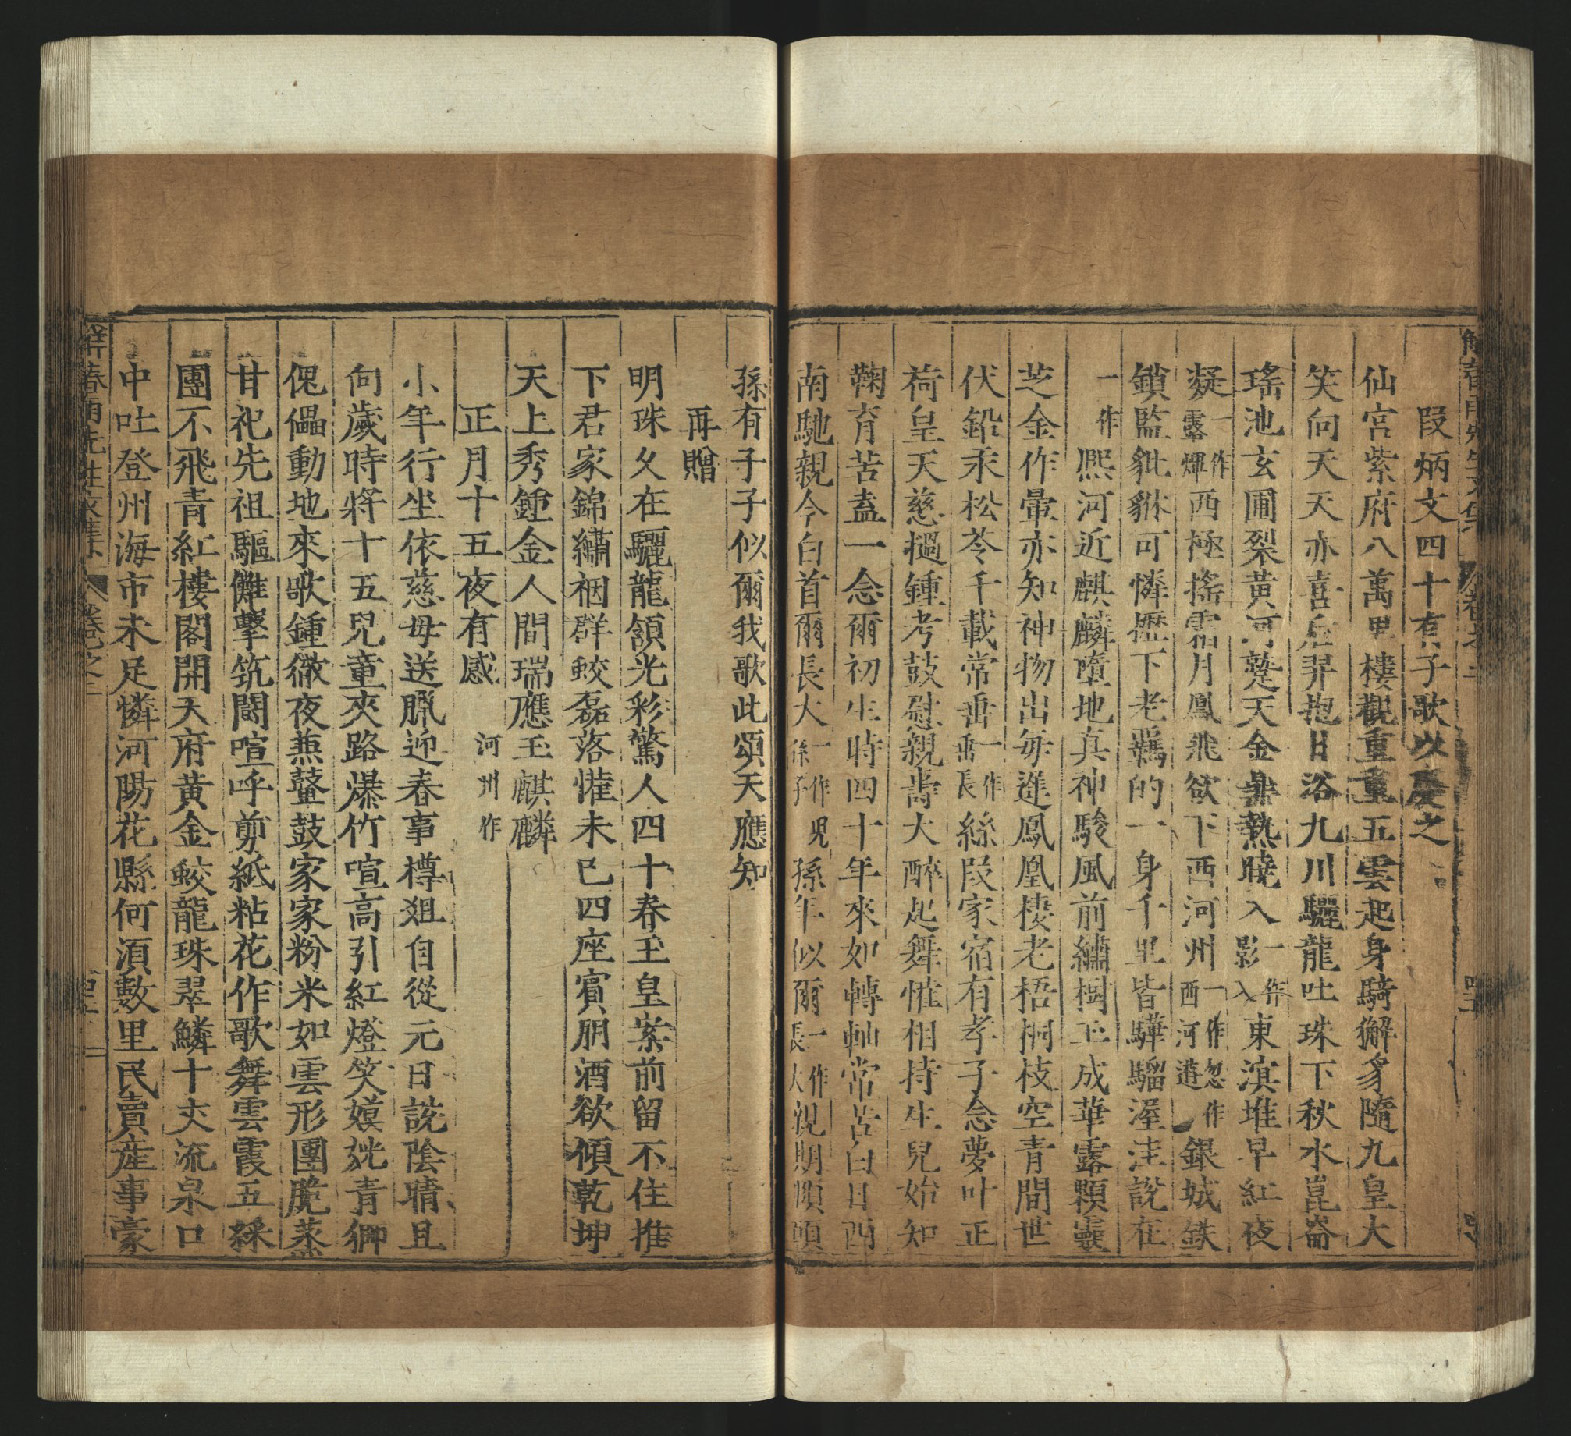 段炳文四十有子歌以慶之
仙宮紫府八萬里樓觀重重五雲起身騎獬豸隨九皇大
笑向天天亦喜后羿抱日浴九川驪龍吐珠下秋水崑崙
瑤池玄圃裂黃河蹙天金晕熱曉入一作影入東溟堆早紅夜
凝一作露燀西極搖霜月鳳飛欲下西河州一作忽作西河遊銀城鉄
鎖監毗貅可憐櫪下老驥的一身千里皆驊騮渥洼說在
一作熙河近麒麟墮地真神駿風前繡櫚玉成華露顆靈
芝金作暈亦知神物出每遲鳳凰棲老梧桐枝空青間世
伏鉛汞松苓千載常垂一作垂長絲段家宿有孝子念夢叶正
荷皇天慈撾鍾考鼓慰親耆大醉起舞惟相持生兒始知
鞠育苦盍一念爾初生時四十年來如轉軸常苦白日西
南馳親今白首爾長大一作兒孫子孫年似爾長一作長大親期頤頭
孫有子子似爾我歌此頌天應知
再贈
明珠久在驪龍頷光彩驚人四十春玉皇案前留不住推
下君家錦繡裀群蛟磊落懽未已四座賓朋酒欲傾乾坤
天上秀鍾金人間瑞應玉麒麟
正月十五夜有感 河州作
小年行坐依慈母送臘迎春事樽俎自從元日說陰晴且
向歲時將十五兒童夾路爆竹喧高引紅燈笑嫫姺青獅
傀儡動地來歌鍾徹夜燕鼛鼓家家粉米如雲形團脆蒸
甘祀先祖驅儺擊筑鬧喧呼剪紙粘花作歌舞雲霞五綵
團不飛青紅樓閣開天府黃金蛟龍珠翠鱗十丈流泉口
中吐登州海市未足憐河陽花縣何須數里民賣產事豪